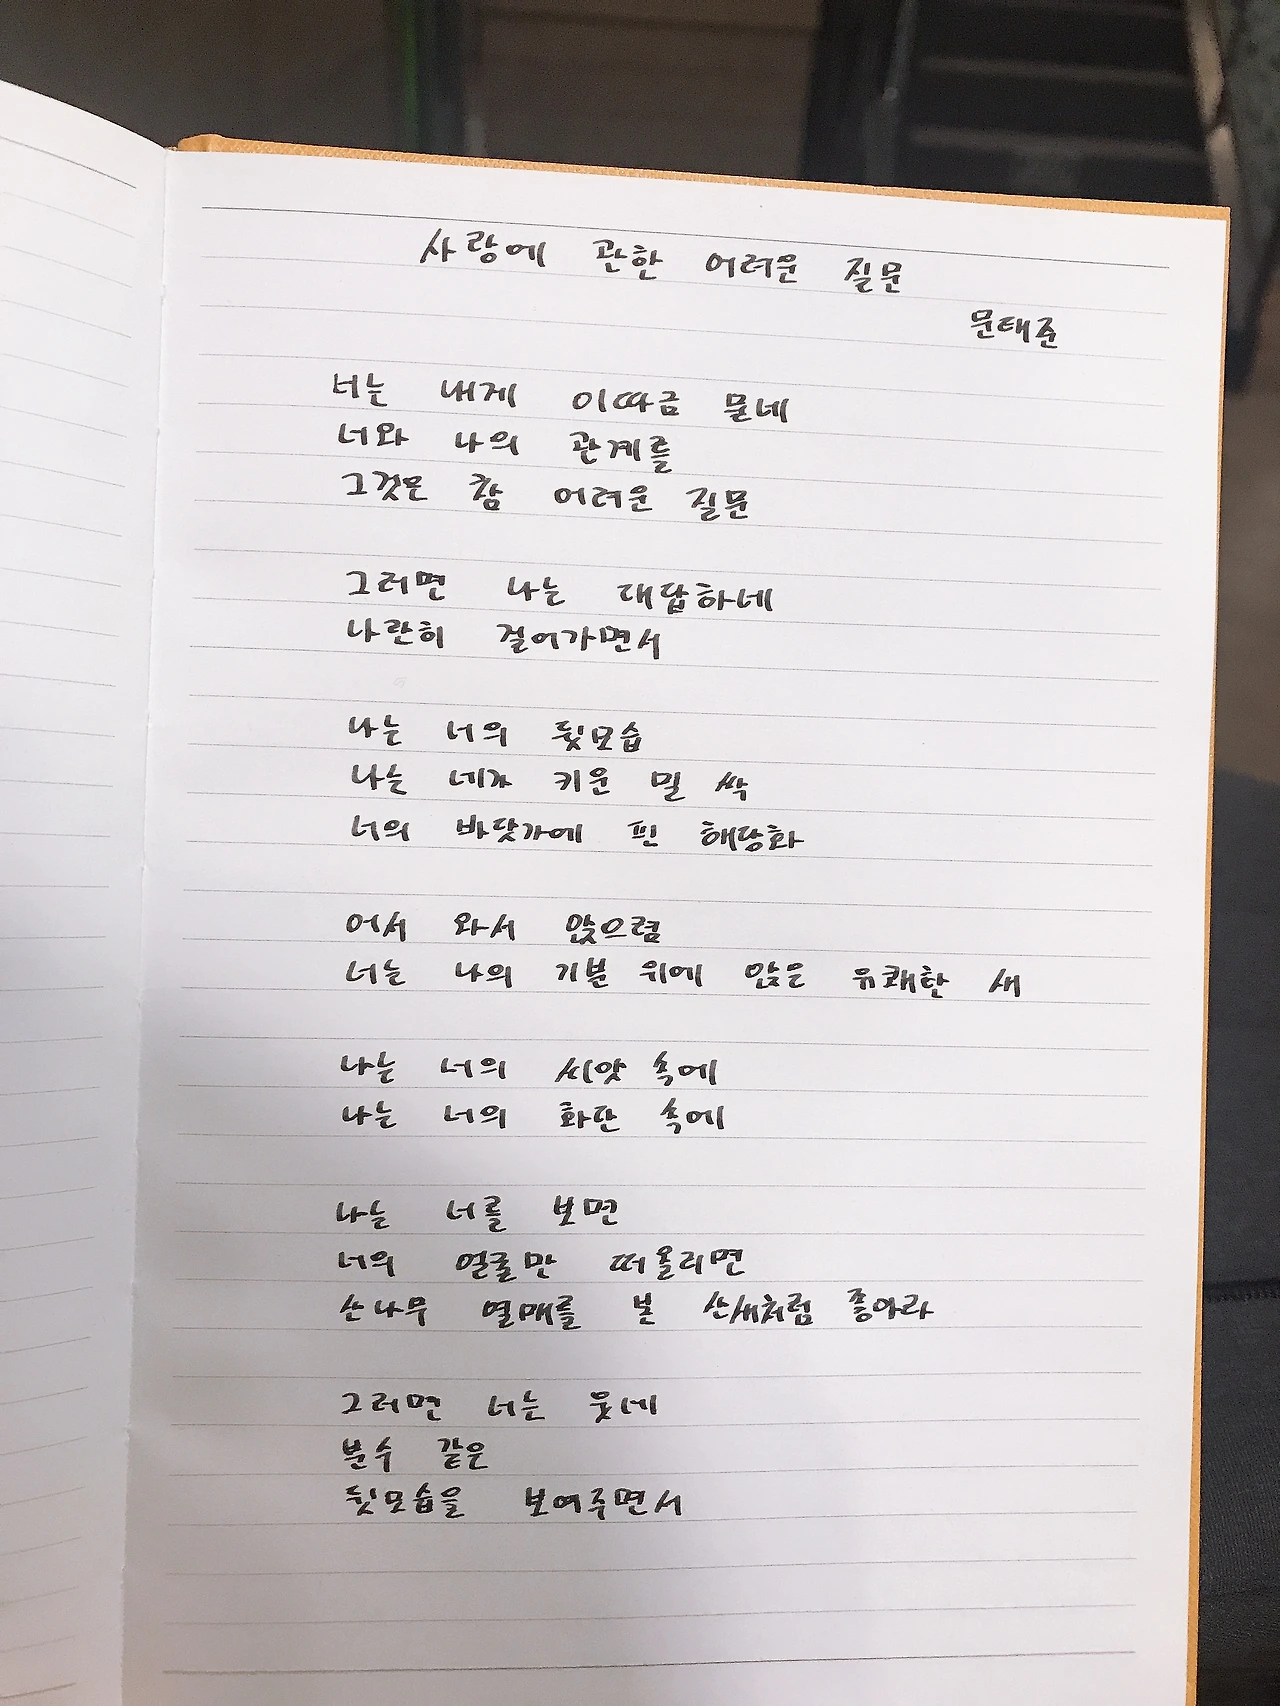 사랑에 관한 어려운 질문
문태준
너는 내게 이따금 묻네
너와 나의 관계를
그것은 참 어려운 질문
그러면 나는 대답하네
나란히 걸어가면서
나는 너의 뒷모습
나는 네가 키운 밀 싹
너의 바닷가에 핀 해당화
어서 와서 앉으렴
너는 나의 기분 위에 앉은 유쾌한 새
나는 너의 씨앗 속에
나는 너의 화단 속에
나는 너를 보면
너의 얼굴만 떠올리면
산나무 열매를 본 산새처럼 좋아라
그러면 너는 웃네
분수 같은
뒷모습을 보여주면서